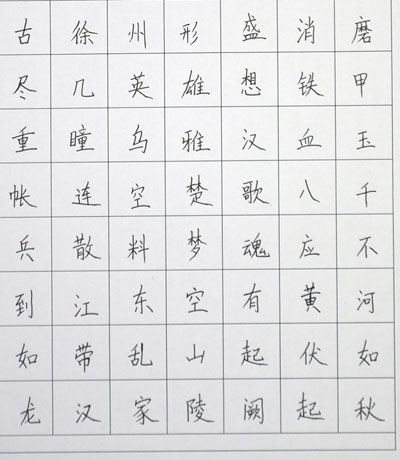 古徐州形盛消磨
尽几英雄想铁甲
重瞳乌雅汉血玉
帐连空楚歌八千
兵散料梦魂应不
到江东空有黄河
如带乱山起伏如
龙汉家陵阙起秋